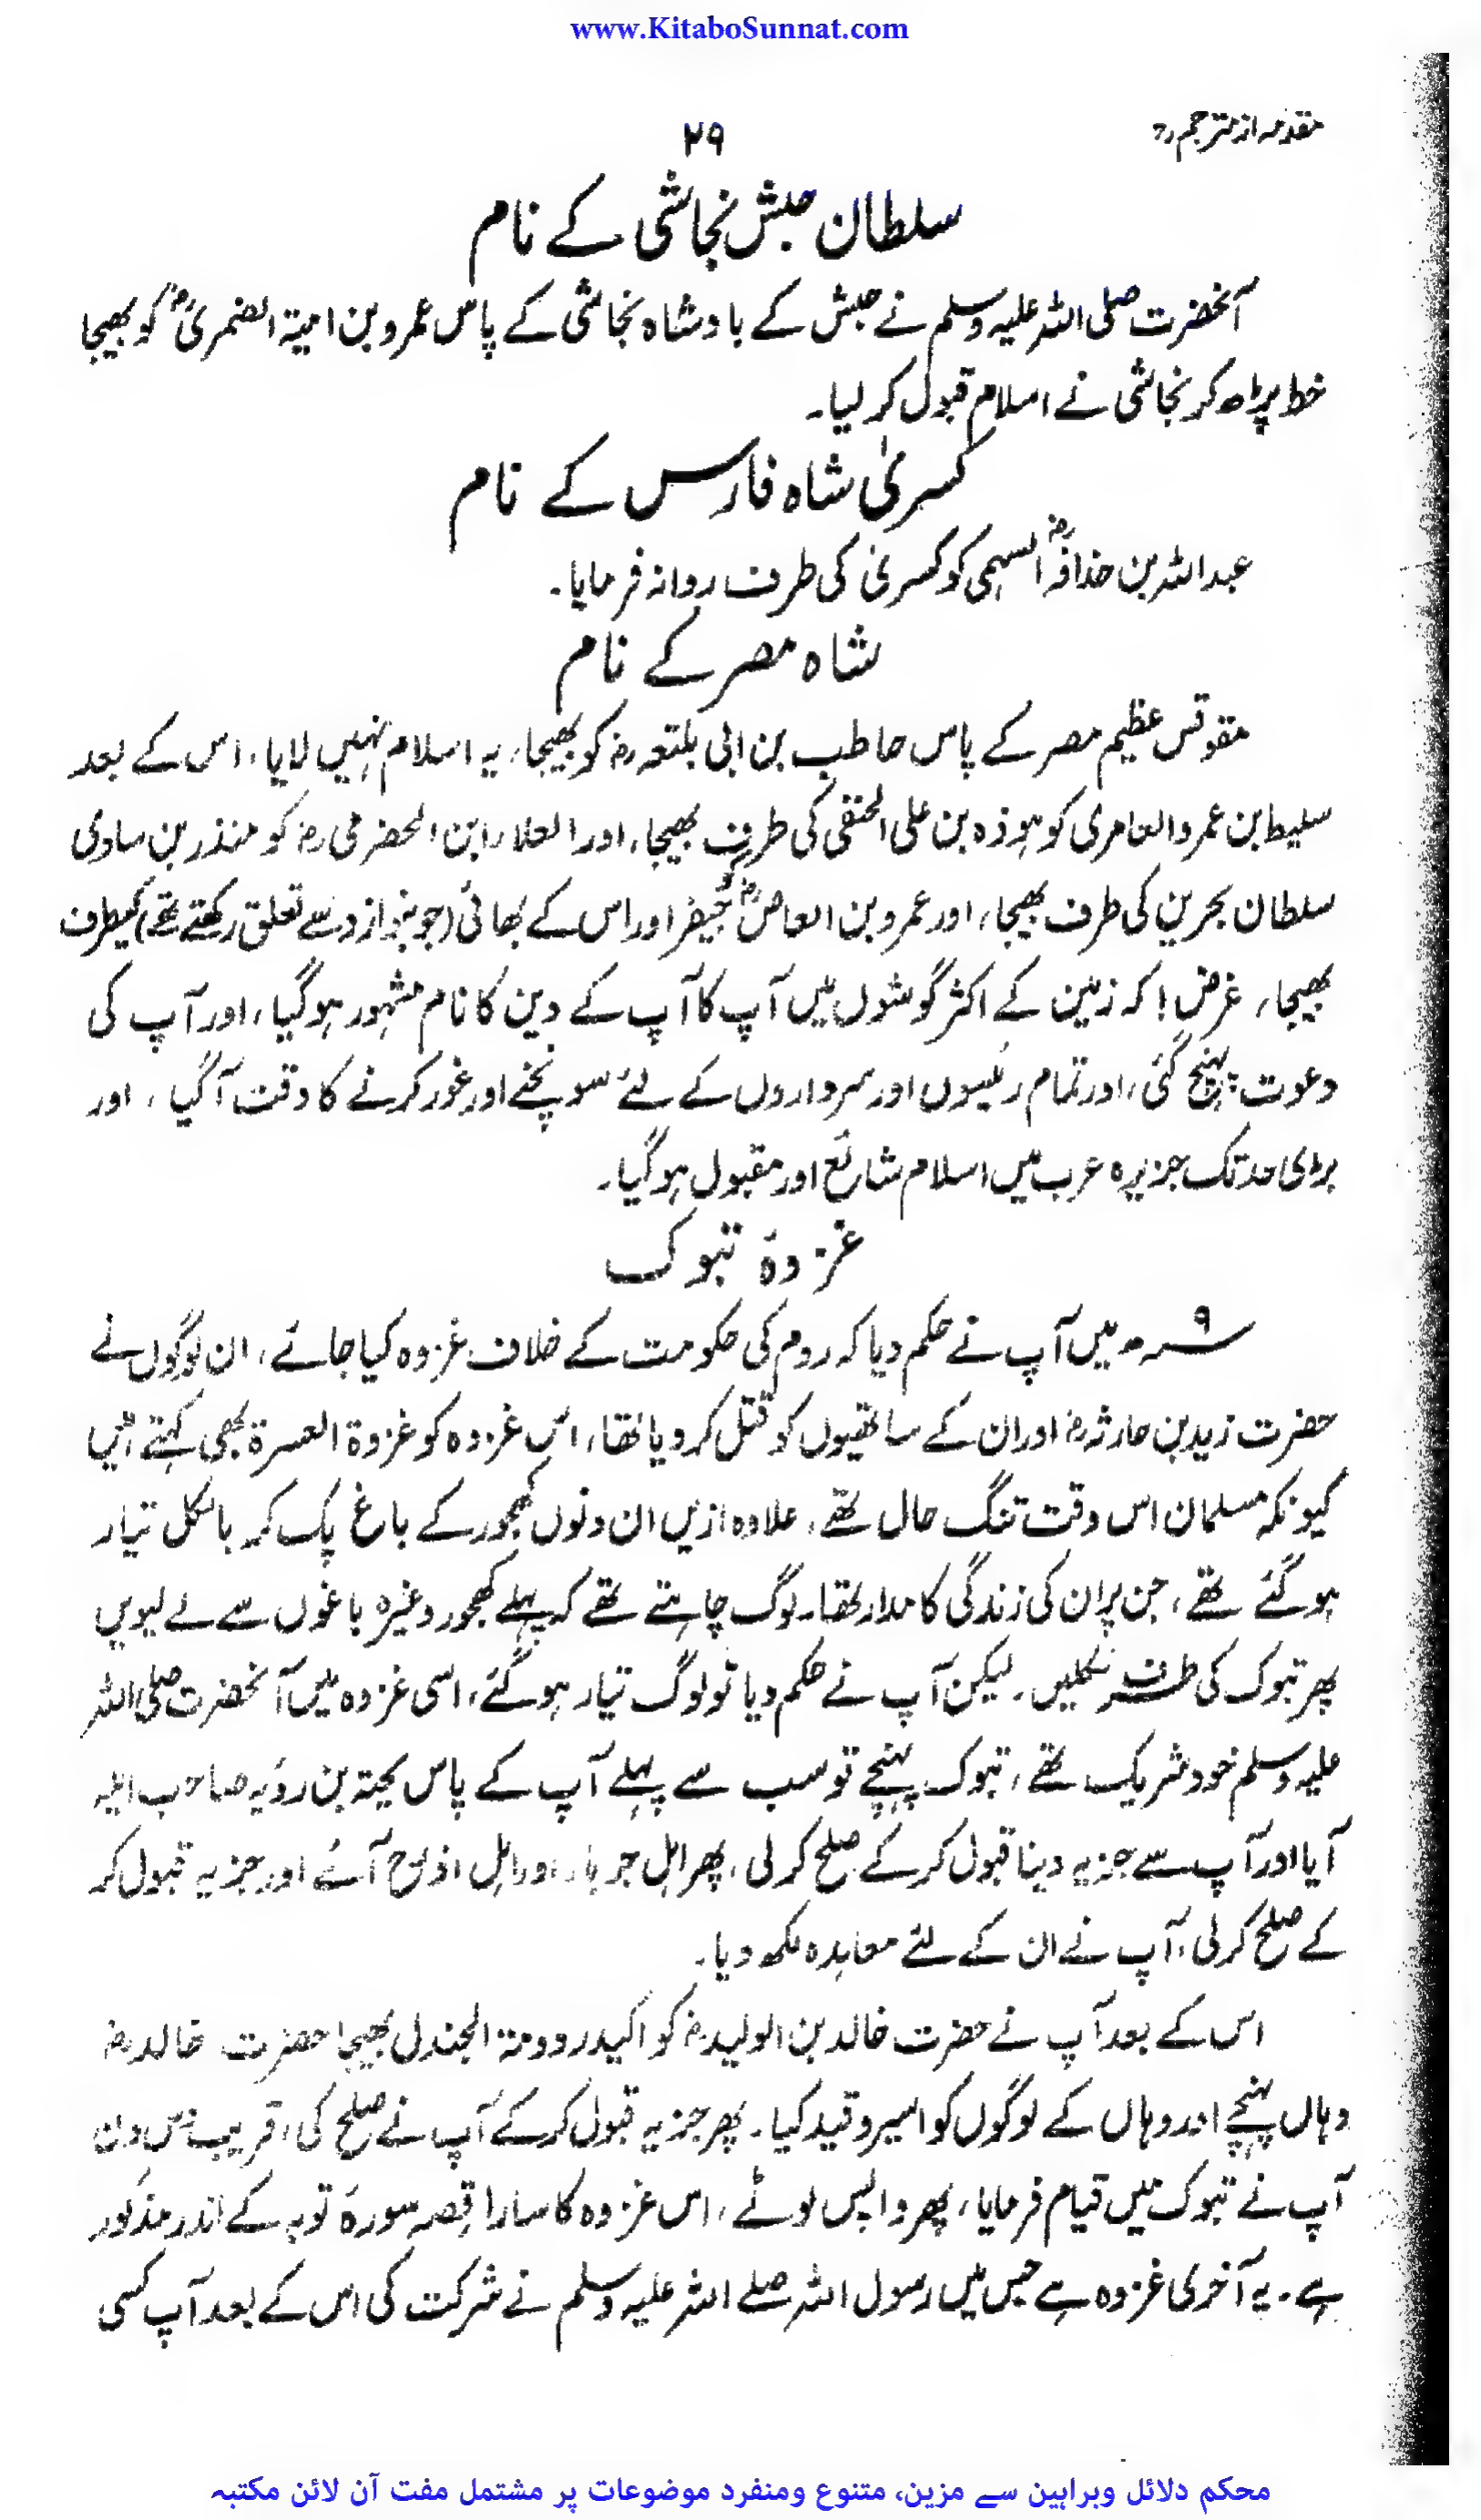 www.KitaboSunnat.com
مقدمہ از مترجم رح
۲۹
سلطان حبش نجاشی کے نام
آنحضرت صلی اللہ علیہ وسلم نے حبش کے بادشاہ نجاشی کے پاس عمرو بن امیۃ الضمریؓ کو بھیجا
خط پڑھ کر نجاشی نے اسلام قبول کر لیا۔
کسریٰ شاہ فارس کے نام
عبداللہ بن حذافہؓ السہمی کو کسریٰ کی طرف روانہ فرمایا۔
شاہ مصر کے نام
مقوقس عظیم مصر کے پاس حاطب بن ابی بلتعہ رض کو بھیجا، یہ اسلام نہیں لایا، اس کے بعد
سلیط بن عمرو العامری کو ہوذہ بن علی الحنفی کی طرف بھیجا، اور العلاء ابن الحضرمی رض کو منذر بن ساوی
سلطان بحرین کی طرف بھیجا، اور عمرو بن العاصؓ کو جیفر اور اس کے بھائی (جو بنو ازد سے تعلق رکھتے تھے) کیطرف
بھیجا، غرض! کہ زمین کے اکثر گوشوں میں آپ کا آپ کے دین کا نام مشہور ہو گیا، اور آپ کی
دعوت پہنچ گئی، اور تمام رئیسوں اور سرداروں کے لئے سوچنے اور غور کرنے کا وقت آ گیا، اور
بڑی حد تک جزیرہ عرب میں اسلام شائع اور مقبول ہو گیا۔
غزوۂ تبوک
۹ سنہ ھ میں آپ نے حکم دیا کہ روم کی حکومت کے خلاف غزوہ کیا جائے، ان لوگوں نے
حضرت زید بن حارثہ رض اور ان کے ساتھیوں کو قتل کر دیا تھا، اس غزوہ کو غزوۃ العسرۃ بھی کہتے ہیں
کیونکہ مسلمان اس وقت تنگ حال تھے، علاوہ ازیں ان دنوں کھجور کے باغ پک کر بالکل تیار
ہو گئے تھے، جن پر ان کی زندگی کا مدار تھا۔ لوگ چاہتے تھے کہ پہلے کھجور وغیرہ باغوں سے لے لیویں
پھر تبوک کی طرف نکلیں۔ لیکن آپ نے حکم دیا تو لوگ تیار ہو گئے، اسی غزوہ میں آنحضرت صلی اللہ
علیہ وسلم خود شریک تھے، تبوک پہنچے تو سب سے پہلے آپ کے پاس یحنۃ بن روبہ صاحب ایلہ
آیا اور آپ سے جزیہ دینا قبول کر کے صلح کر لی، پھر اہل جرباء اور اہل اذرح آئے اور جزیہ قبول کر
کے صلح کر لی، آپ نے ان کے لئے معاہدہ لکھ دیا۔
اس کے بعد آپ نے حضرت خالد بن الولید رض کو اکیدر دومۃ الجندل بھیجا حضرت خالد رض
وہاں پہنچے اور وہاں کے لوگوں کو اسیر و قید کیا۔ پھر جزیہ قبول کر کے آپ نے صلح کی، قریب دن
آپ نے تبوک میں قیام فرمایا، پھر واپس لوٹے، اس غزوہ کا سارا قصہ سورۂ توبہ کے اندر مذکور
ہے۔ یہ آخری غزوہ ہے جس میں رسول اللہ صلے اللہ علیہ وسلم نے شرکت کی اس کے بعد آپ کسی
محکم دلائل وبراہین سے مزین، متنوع ومنفرد موضوعات پر مشتمل مفت آن لائن مکتبہ